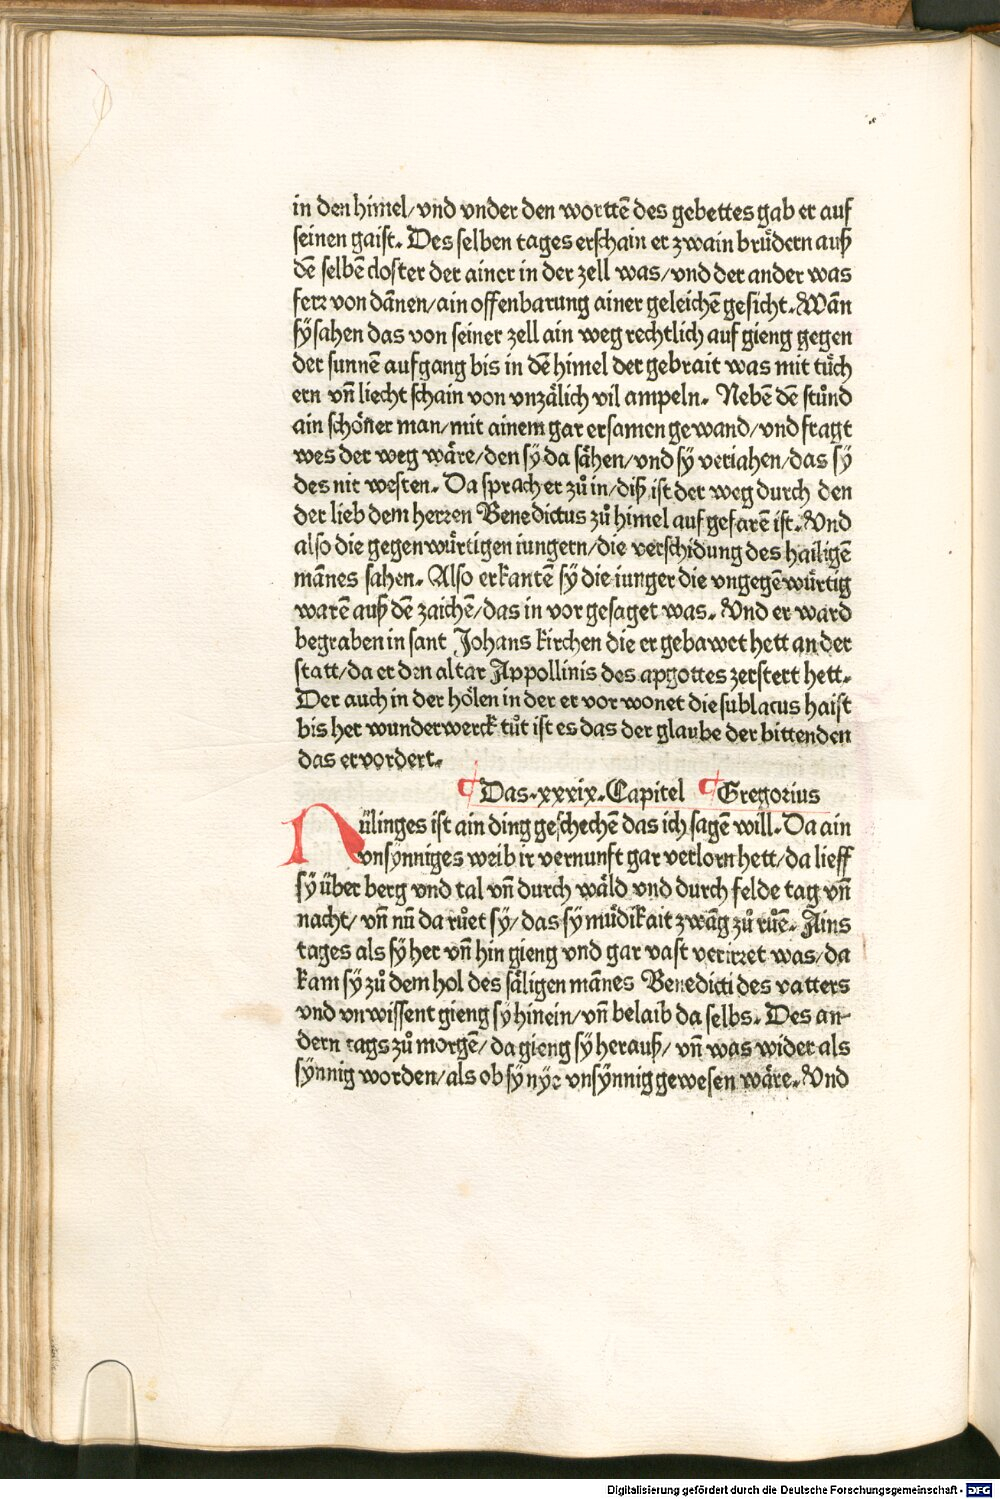 in den himel/vnd vnder den worttē des gebettes gab er auf
seinen gaist. Des selben tages erschain er zwain brůdern auß
dē selbē closter der ainer in der zell was/vnd der ander was
ferꝛ von dānen/ain offenbarung ainer geleichē gesicht. Wān
sÿ sahen das von seiner zell ain weg rechtlich auf gieng gegen
der sunnē aufgang bis in dē himel der gebrait was mit tůch
ern vn̄ liecht schain von vnzälich vil ampeln. Nebē dē stůnd
ain schöner man/mit ainem gar ersamen gewand/vnd fragt
wes der weg wäre/den sÿ da sähen/vnd sÿ veriahen/das sÿ
des nit westen. Da sprach er zů in/diß ist der weg durch den
der lieb dem herꝛen Benedictus zů himel auf gefarē ist. Vnd
also die gegenwürtigen iungern/die verschidung des hailigē
mānes sahen. Also erkantē sÿ die iunger die vngegēwürtig
warē auß dē zaichē/das in vor gesaget was. Vnd er ward
begraben in sant Johans kirchen die er gebawet hett an der
statt/da er den altar Appollinis des apgottes zerstert hett.
Der auch in der hölen in der er vor wonet die sublacus haist
bis her wunderwerck tůt ist es das der glaube der bittenden
das er vordert.
¶ Das .xxxix. Capitel ¶ Gregorius
Nülinges ist ain ding geschechē das ich sagē will. Da ain
vnsÿnniges weib ir vernunft gar verlorn hett/da lieff
sÿ über berg vnd tal vn̄ durch wäld vnd durch felde tag vn̄
nacht/ vn̄ nū da růet sÿ/das sÿ müdikait zwāg zů růē. Ains
tages als sÿ her vn̄ hin gieng vnd gar vast verirꝛet was/da
kam sÿ zů dem hol des säligen mānes Benedicti des vatters
vnd vnwissent gieng sÿ hinein/vn̄ belaib da selbs. Des an-
dern tags zů morgē/da gieng sÿ herauß/ vn̄ was wider als
sÿnnig worden/als ob sÿ nÿe vnsÿnnig gewesen wäre. Vnd
Digitalisierung gefördert durch die Deutsche Forschungsgemeinschaft - DFG